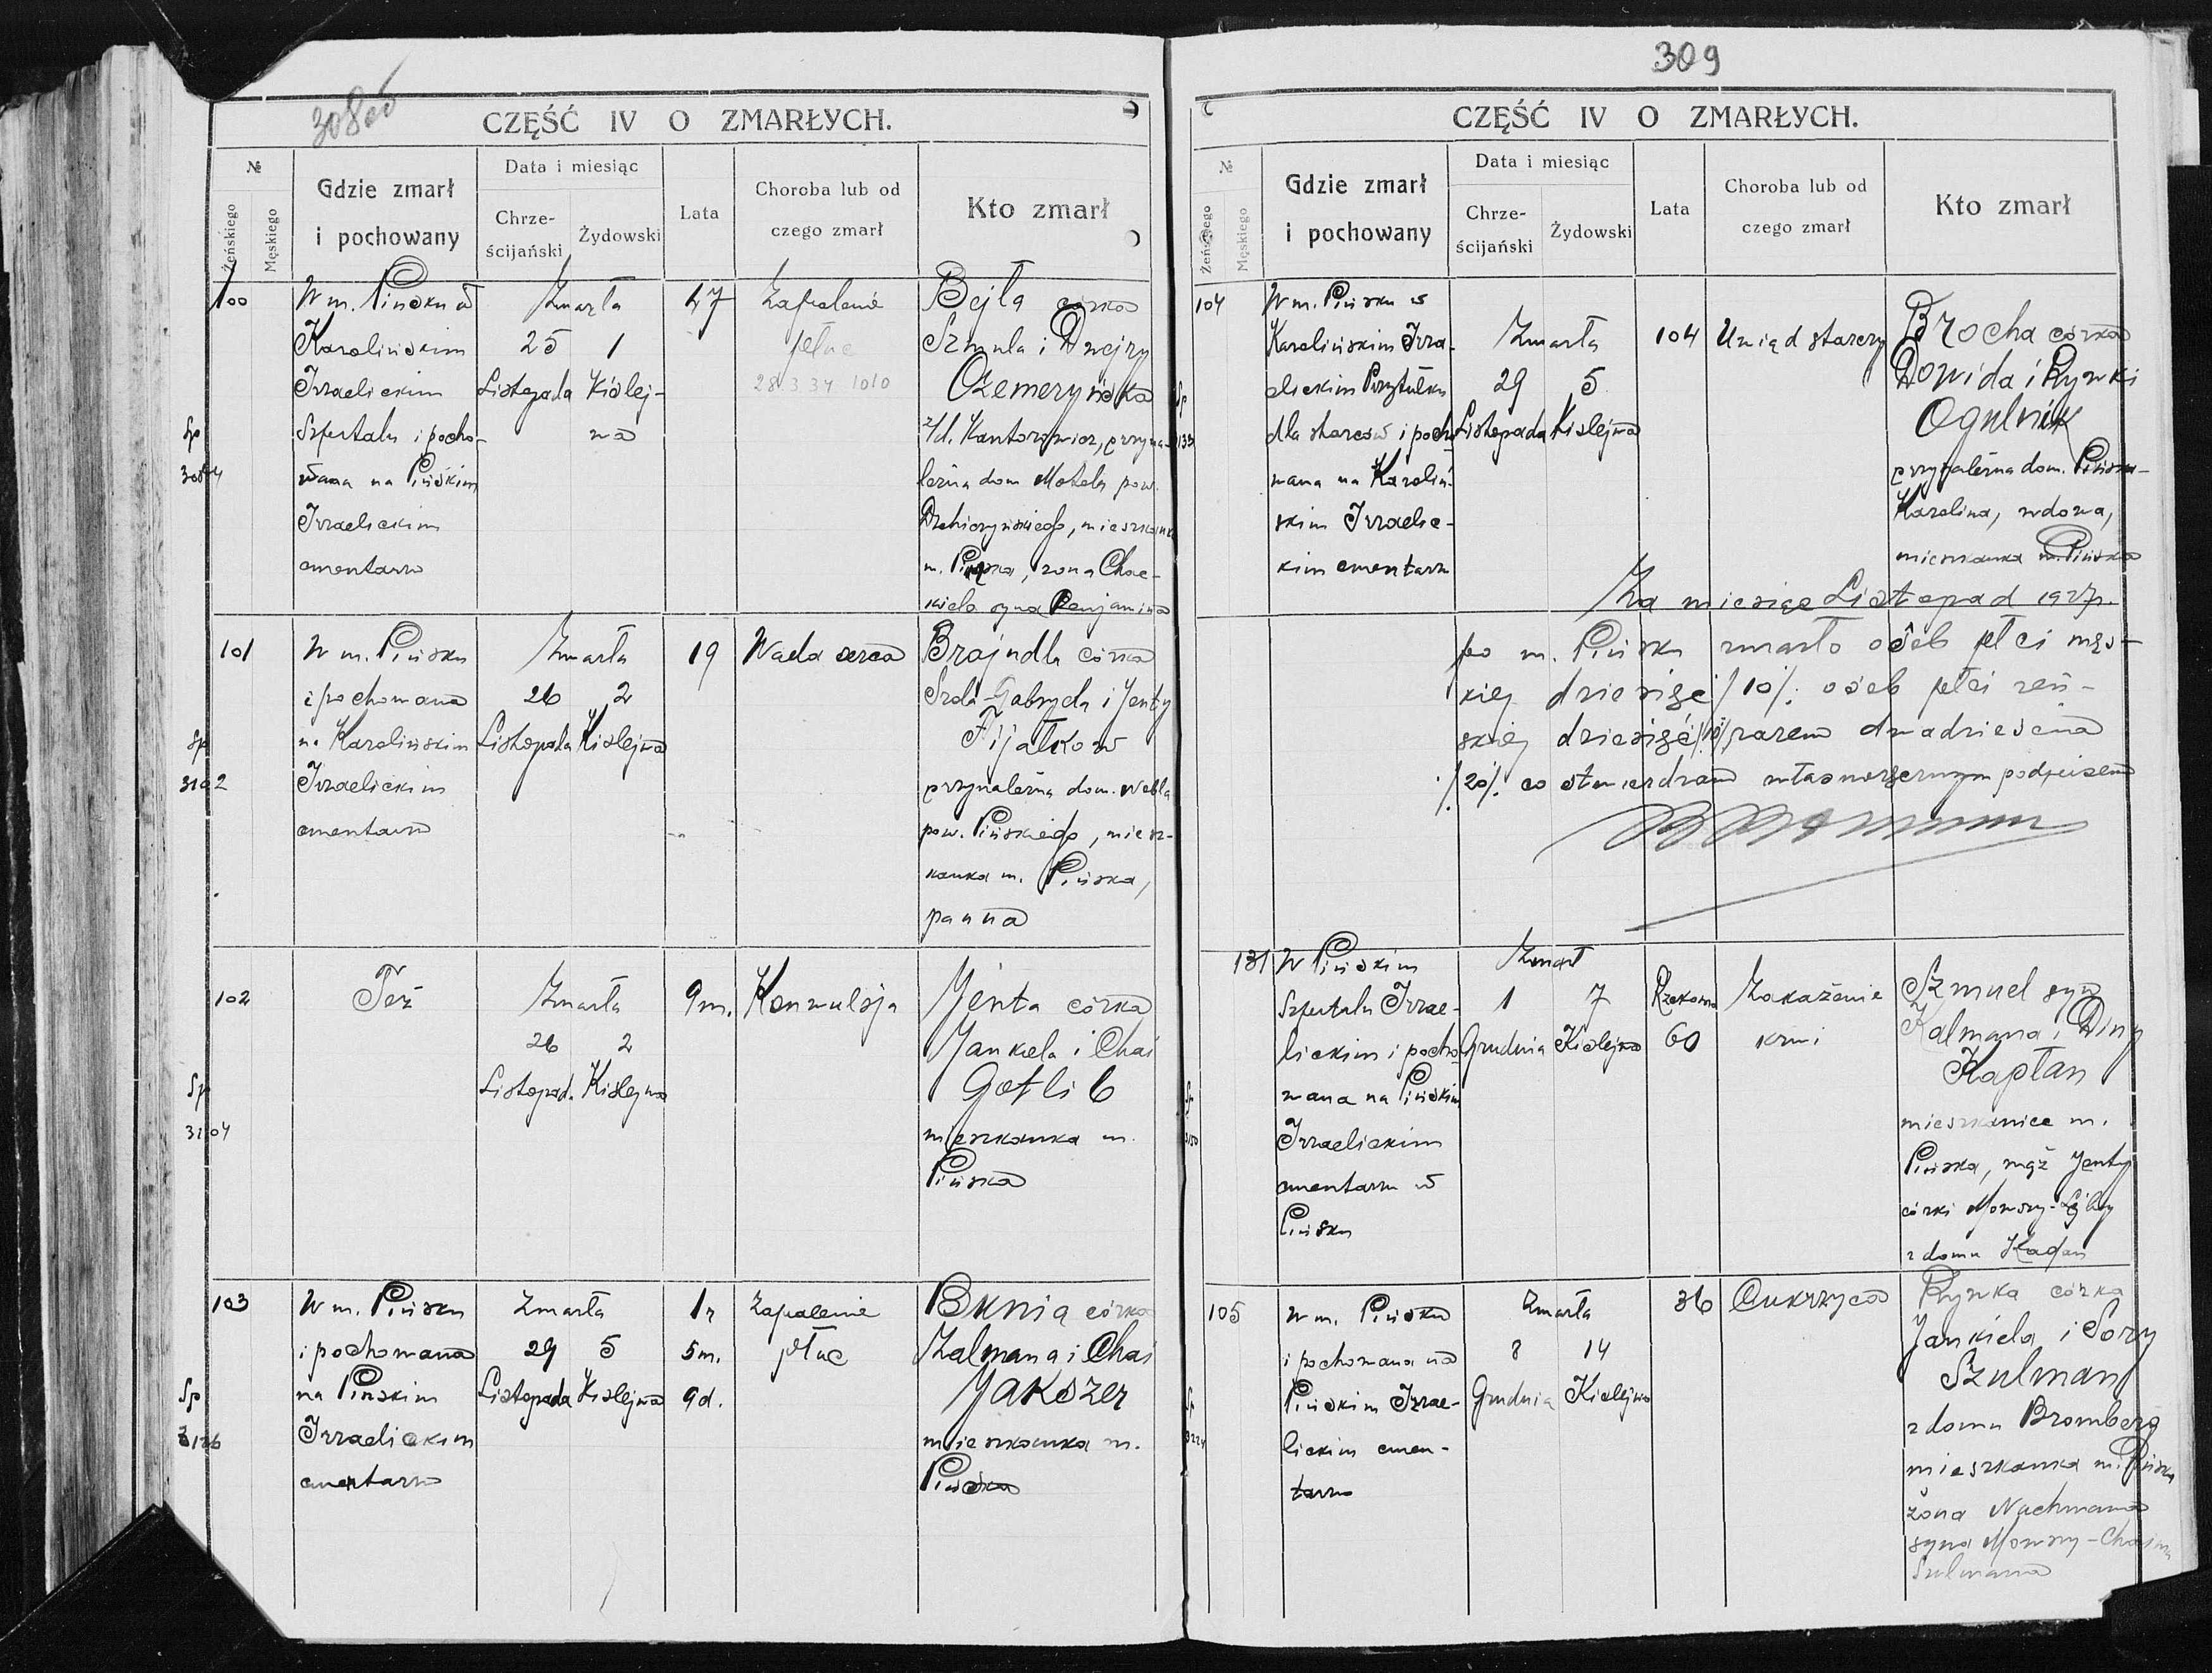 308
CZĘŚĆ IV O ZMARŁYCH.
№
Żeńskiego
Męskiego
Gdzie zmarł
i pochowany
Data i miesiąc
Chrze-
ścijański
Żydowski
Lata
Choroba lub od
czego zmarł
Kto zmarł
100
Sp
3084
W m. Pińsku w
Karolińskim
Izraelickim
Szpitalu i pocho-
wana na Pińskim
Izraelickim
cmentarzu
Zmarła
25 1
Listopada Kislej-
wa
47
Zapalenie
płuc
28 3 34 1010
Bejła córka
Szmula i Dwejry
Ożemeryńska
z/d. Kantorowicz, przyna-
leżna dom Motela pow.
Drohiczyńskiego, mieszkanka
m. Pińska, żona Chac-
kiela syna Benjamina
101
Sp
3102
W m. Pińsku
i pochowana
na Karolińskim
Izraelickim
cmentarzu
Zmarła
26 2
Listopada Kislejwa
19
Wada serca
Brajndla córka
Srola-Gabryela i Jenty
Fijałkow
przynależna dom.
pow. Pińskiego, miesz-
kanka m. Pińska,
panna
102
Sp
3104
Też
Zmarła
26 2
Listopad. Kislejwa
9 m.
Konwulsja
Jenta córka
Jankela i Chai
Gotlib
mieszkanka m.
Pińska
103
Sp
3126
W m. Pińsku
i pochowana
na Pińskim
Izraelickim
cmentarzu
Zmarła
29 5
Listopada Kislejwa
1 r
5 m.
9 d.
Zapalenie
płuc
Bunia córka
Zalmana i Chai
Jakszer
mieszkanka m.
Pińska
309
CZĘŚĆ IV O ZMARŁYCH.
№
Żeńskiego
Męskiego
Gdzie zmarł
i pochowany
Data i miesiąc
Chrze-
ścijański
Żydowski
Lata
Choroba lub od
czego zmarł
Kto zmarł
104
Sp
W m. Pińsku w
Karolińskim Izra-
elickim Przytułku
dla starców i pocho
wana na Karoliń-
skim Izraelic-
kim cmentarzu
Zmarła
29 5
Listopada Kislejwa
104
Uwiąd starczy
Brocha córka
Dowida i Rywki
Ogulnik
przynależna dom. Pińsku-
Karolina, wdowa,
mieszkanka m. Pińska
Za miesiąc Listopad 1927 r.
po m. Pińsku zmarło osób płci męs-
kiej dziesięć /10/. osób płci żeń-
skiej dziesięć /10/ razem dwadzieścia
/20/. co stwierdzam własnoręcznym podpisem
131
Sp
3150
W Pińskim
Szpitalu Izrae-
lickim i pocho
wana na Pińskim
Izraelickim
cmentarzu w
Pińsku
Zmarł
1 7
Grudnia Kislejwa
Rzekomo
60
Zakażenie
krwi
Szmuel syn
Kalmana i Diny
Kapłan
mieszkaniec m.
Pińska, mąż Jenty
córki Mowszy-Lejby
z domu Kagan
105
Sp
3224
W m. Pińsku
i pochowana na
Pińskim Izrae-
lickim cmen-
tarzu
Zmarła
8 14
Grudnia Kislejwa
36
Cukrzyca
Rywka córka
Jankiela i Sory
Szulman
z domu Bromberg
mieszkanka m. Pińska
żona Nachmana
syna Mowszy-Chaima
Szulmana